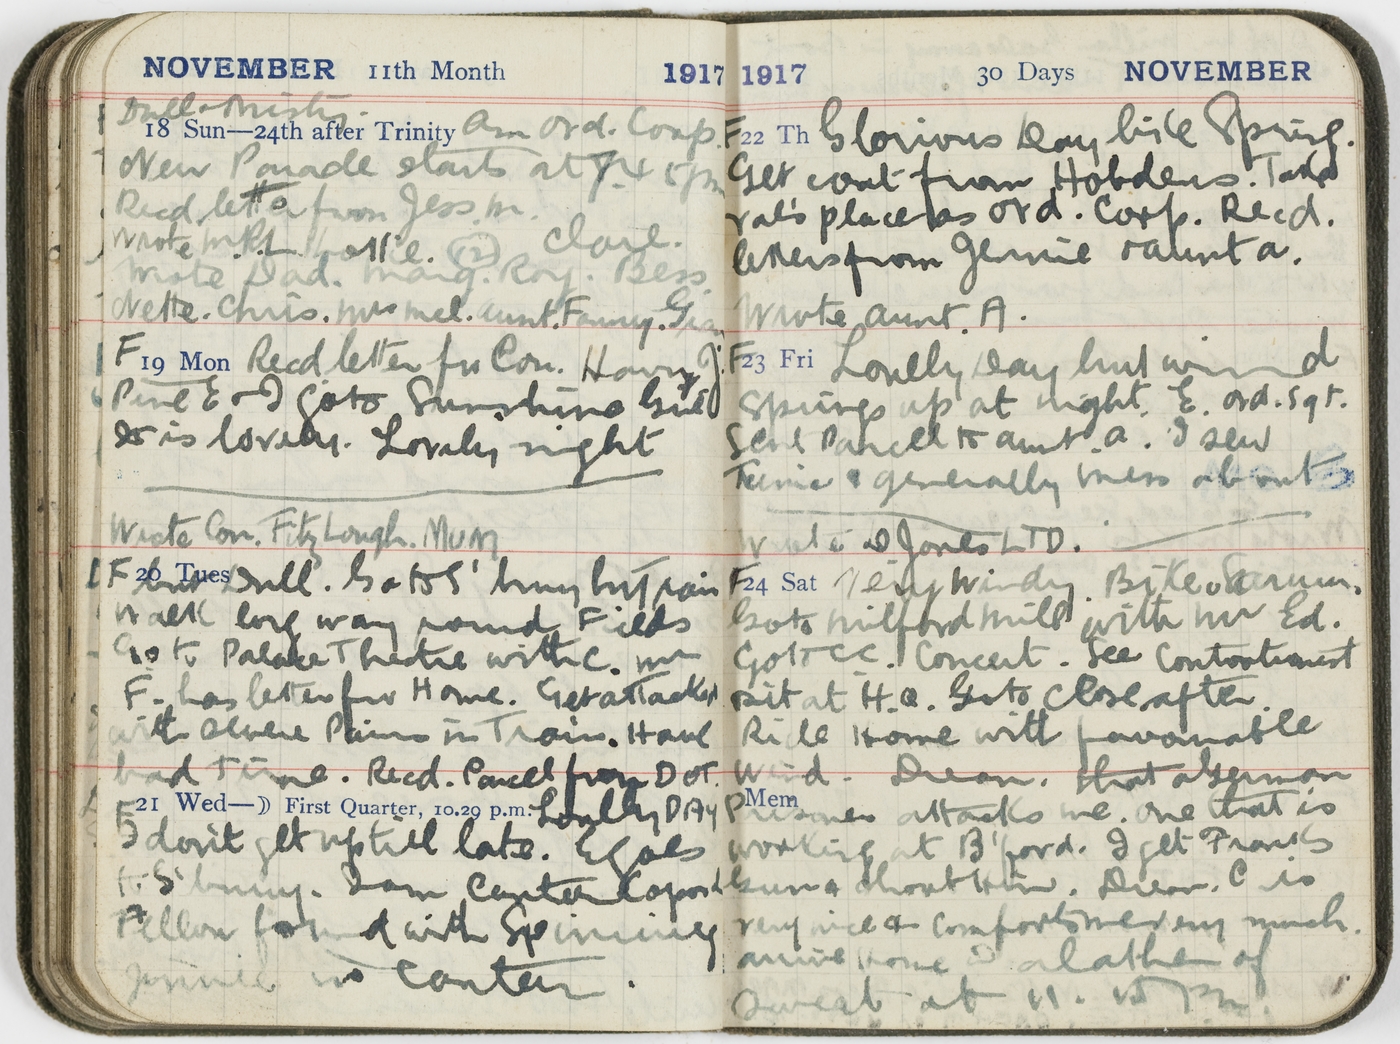 NOVEMBER 11th Month 1917
Dull & Misty.
18 Sun—24th after Trinity Am Ord. Corp.
New Parade starts at 7.45pm
Recd letter from Jess. M.
Wrote Mrs. L. Hattie. (12) Clare.
Wrote Dad. Marg. Roy. Bess.
Nette. Chris. Mrs Mel. Aunt. Fanny.
F 19 Mon Recd letter fr Con.
E & I go to Sunshine
is lovely. Lovely night
Wrote Con. Fitz Lough. Mum
F 20 Tues Dull. Go to S'bury by Train
Walk long way round Fields
Go to Palace Theatre with C. Mr
F. has letter for Home. Get attacked
with severe Pains in Train. Have
bad time. Recd. Parcel from Dot.
21 Wed—☽ First Quarter, 10.29 p.m. Lovely Day
F I don't get up till late. E goes
to S'bury. I am Canteen Corporal
Fellow found with Spinning
Jennie in Canteen.
1917 30 Days NOVEMBER
F 22 Th Glorious Day like Spring.
Get coat from Hobdens. Take
Val's place as Ord. Corp. Recd.
letters from Jennie & Aunt A.
Wrote Aunt. A.
F 23 Fri Lovely Day but wind
springs up at night. E. Ord. Sgt.
Sent Parcel to Aunt. A. I sew
Tunic & generally mess about
Wrote D Jones LTD.
F 24 Sat Very Windy. Bike
Go to Milford Mill with Mr Ed.
Go to CC. Concert. See Contortionist
sit at H.Q. Go to Close after.
Ride Home with favourable
Wind. Dream. that a German
Mem Prisoner attacks me. one that is
working at B'ford. I get Franks
Gun & shoot him. Dream. C is
very nice & comforts me very much.
arrive Home in a lather of
sweat at 11.15 pm.